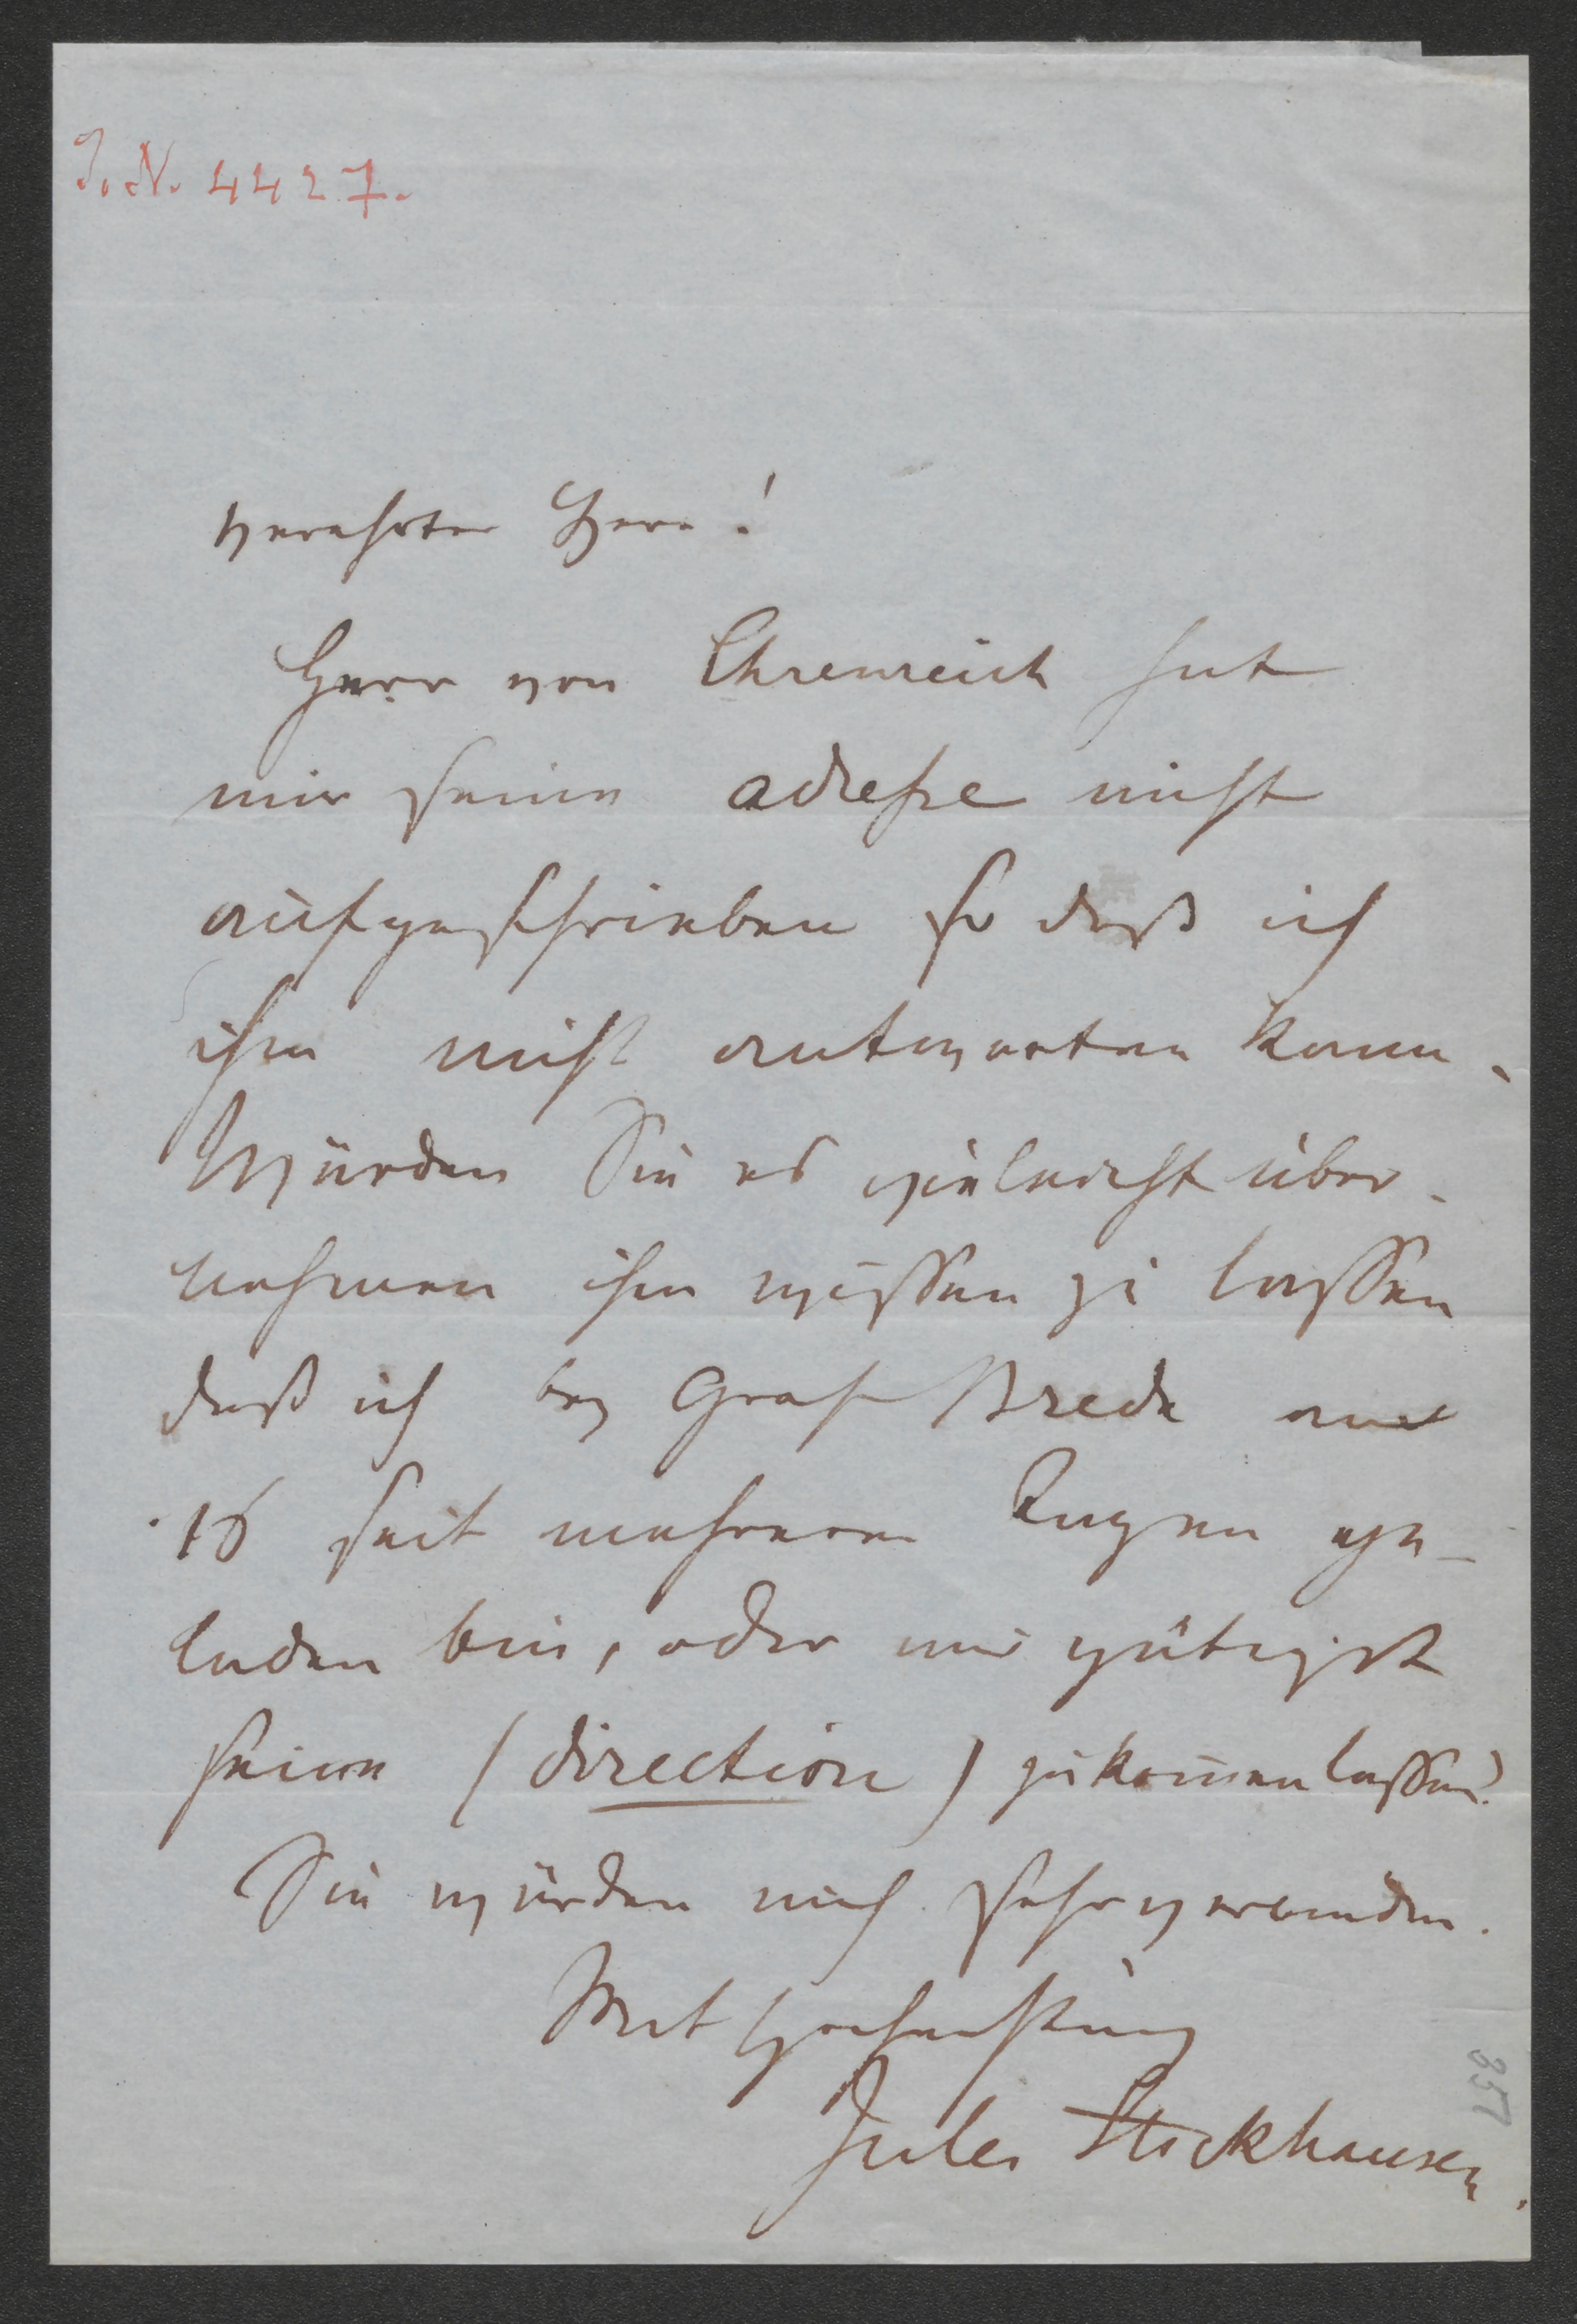 J. N. 4427.
verehrter Herr!
Herr von Ehrenreich hat
mir seine adresse nicht
aufgeschrieben so daß ich
ihm nicht antworten kann.
Würden Sie es vieleicht über-
nehmen ihm wissen zu lassen
daß ich bey Graf Wrede am
16 seit mehreren Tagen ge-
laden bin, oder mir gütigst
seine (direction) zukommen lassen?
Sie würden mich sehr verbinden.
Mit Hochachtung
Jules Stockhausen.
357